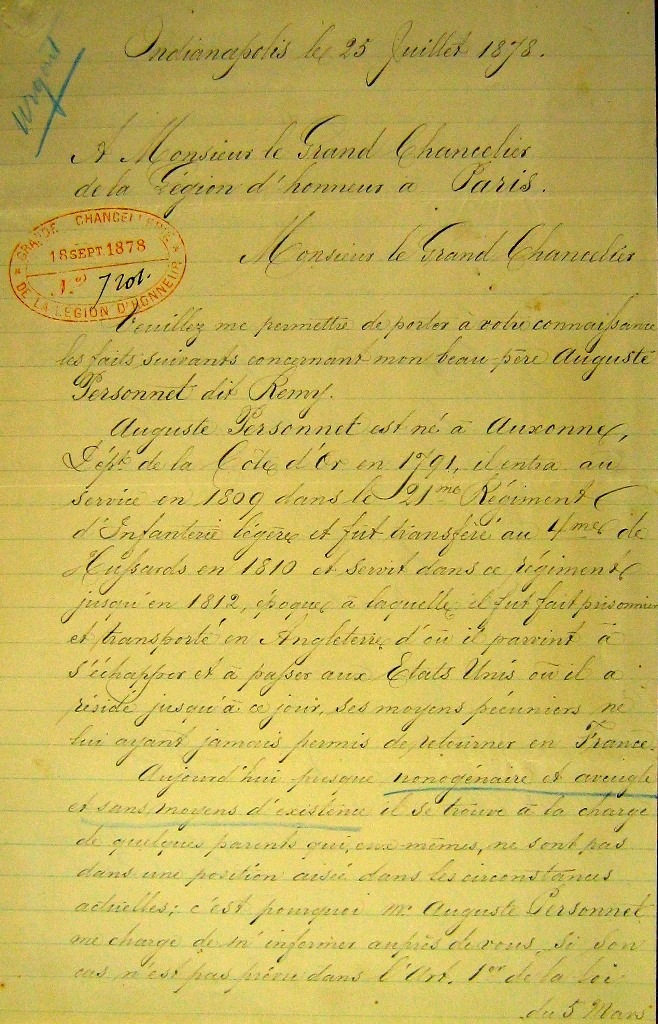 Indianapolis le 25 Juillet 1878.
urgent
A Monsieur le Grand Chancelier
de la Légion d'honneur a Paris.
GRANDE CHANCELLERIE
18 SEPT. 1878
DE LA LEGION D'HONNEUR
Monsieur le Grand Chancelier
Veuillez me permettre de porter à votre connaissance
les faits suivants concernant mon beau-père Auguste
Personnet dit Remy.
Auguste Personnet est né à Auxonne,
Dépt. de la Côte d'Or en 1791, il entra au
service en 1809 dans le 21me Régiment
d'Infanterie légère et fut transféré au 4me de
Hussards en 1810 et servit dans ce régiment
jusqu'en 1812, époque à laquelle il fut fait prisonnier
et transporté en Angleterre d'où il parvint à
s'échapper et à passer aux Etats Unis où il a
résidé jusqu'à ce jour, ses moyens pécuniers ne
lui ayant jamais permis de retourner en France.
Aujourd'hui presque nonogénaire et aveugle
et sans moyens d'existence il se trouve à la charge
de quelques parents qui, eux-mêmes, ne sont pas
dans une position aisée dans les circonstances
actuelles; c'est pourquoi mr Auguste Personnet
me charge de m'informer auprès de vous si son
cas n'est pas prévu dans l'Art. 1er de la loi
du 5 Mars